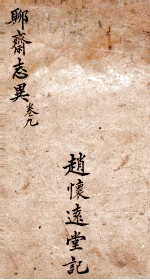 聊齋志異卷九
趙懷遠堂記